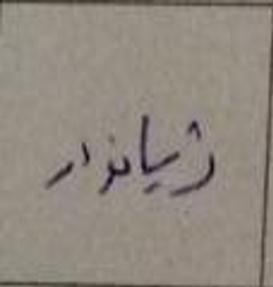 ژیانوار